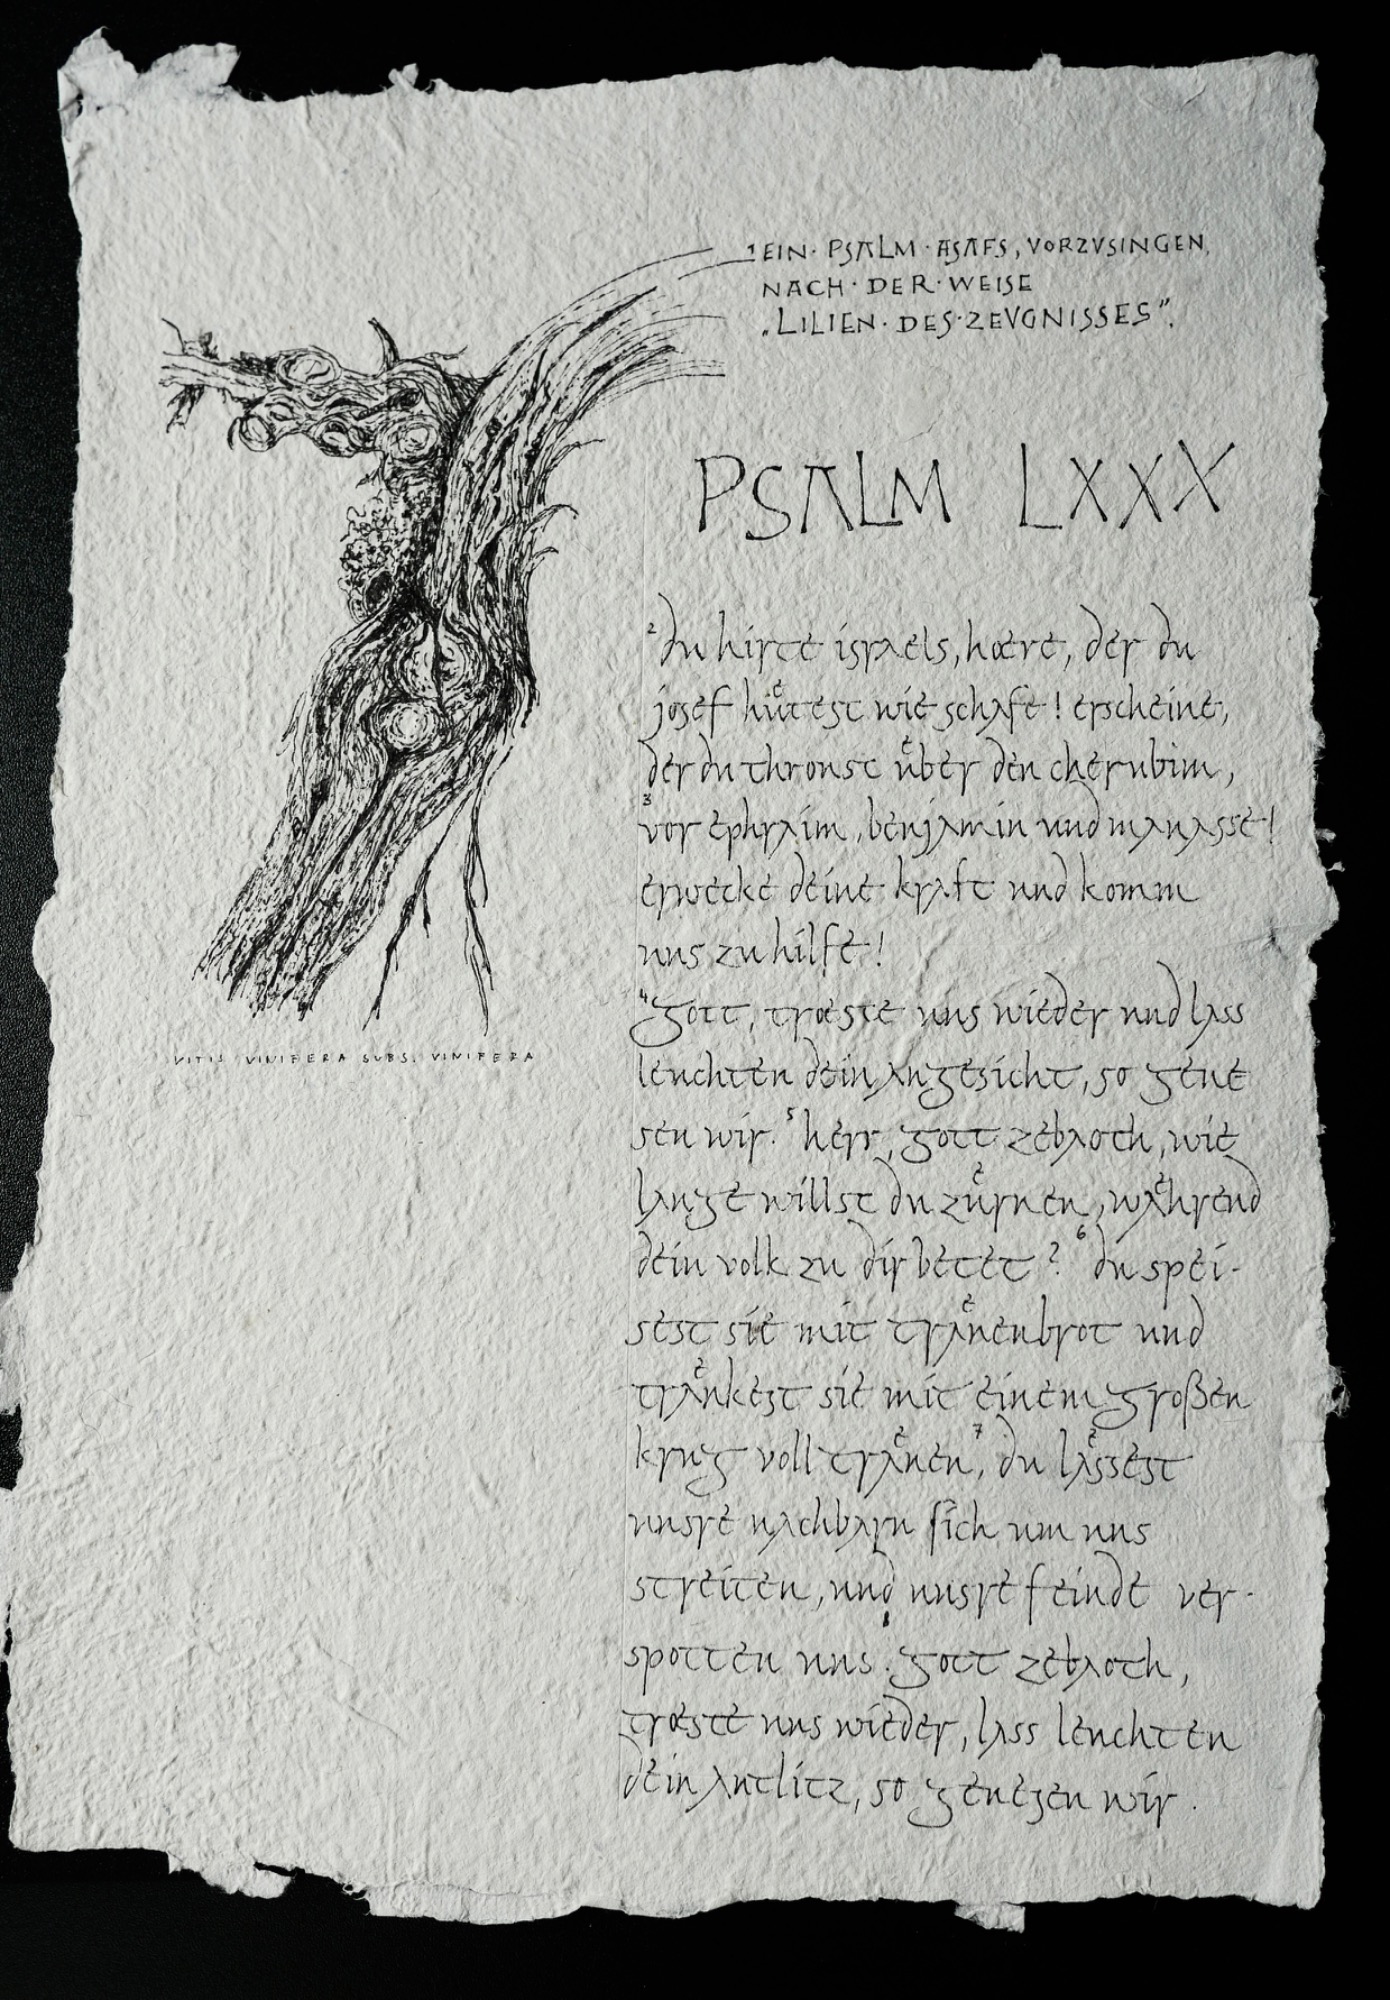 ¹EIN· PSALM · ASAFS, VORZVSINGEN,
NACH · DER · WEISE
„LILIEN · DES · ZEVGNISSES”.
PSALM LXXX
²du hirte israels, hœre, der du
josef huͤtest wie schafe! erscheine,
der du thronst uͤber den cherubim,
³vor ephraim, benjamin und manasse!
erwecke deine kraft und komm
uns zu hilfe!
⁴gott, trœste uns wieder und lass
leuchten dein angesicht, so gene
sen wir. ⁵herr, gott zebaoth, wie
lange willst du zuͤrnen, waͤhrend
dein volk zu dir betet? ⁶du spei-
sest sie mit traͤnenbrot und
traͤnkest sie mit einem großen
krug voll traͤnen, ⁷du laͤssest
unsre nachbarn sich um uns
streiten, und unsre feinde ver-
spotten uns. gott zebaoth,
trœste uns wieder, lass leuchten
dein antlitz, so genesen wir.
VITIS VINIFERA SUBS. VINIFERA